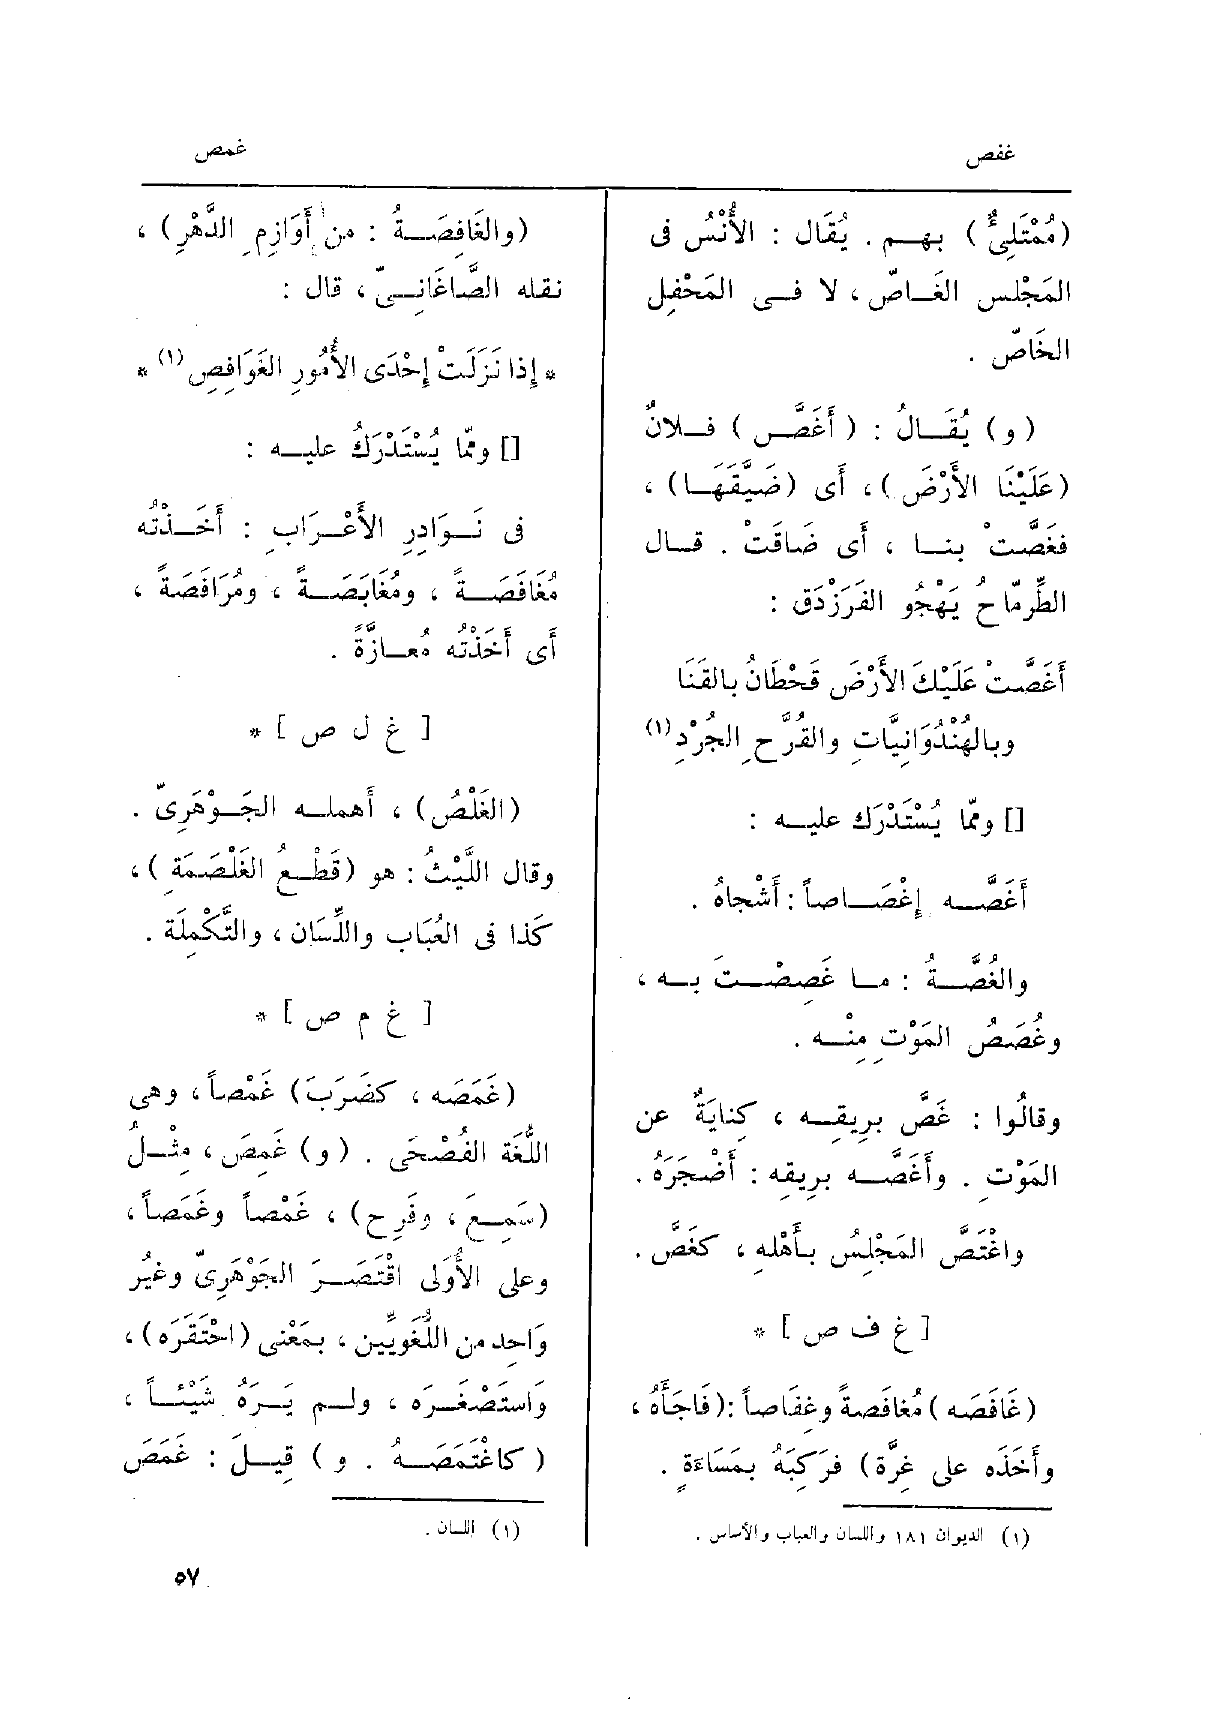 غفص
غمص
(مُمْتَلِئٌ) بهــم . يُقَال : الأُنْسُ فى
المَجْلس الغَــاصّ ، لا فــى المَحْفِل
الخَاصّ .
(و) يُقَــالُ : (أَغَصَّــ) فــلانٌ
(عَلَيْنَا الأَرْضَ) ، أَى (ضَيَّقَهَــا) ،
فغَصَّتْ بنــا ، أَى ضَاقَتْ . قــال
الطِّرمّاحُ يَهْجُو الفَرَزْدَق :
أَغَصَّتْ عَلَيْكَ الأَرْضَ قَحْطَانُ بالقَنَا
وبالهُنْدُوَانِيَّاتِ والقُرَّحِ الجُرْدِ (١)
[] وممّا يُسْتَدْرَك عليــه :
أَغَصَّــه إِغْصَــاصاً : أَشْجاهُ .
والغُصَّــةُ : مــا غَصِصْــتَ بــه ،
وغُصَصُ المَوْتِ مِنْــه .
وقالُوا : غَصَّ بِرِيقِــه ، كِنايَةٌ عن
المَوْتِ . وأَغَصَّــه بِرِيقِه : أَضْجَرَهُ .
واغْتَصَّ المَجْلِسُ بأَهْلِهِ ، كغَصَّ .
[ غ ف ص ] *
(غَافَصَه) مُغافَصةً وغِفَاصاً :(فَاجَأَهُ ،
وأَخَذَه على غِرَّة) فرَكِبَهُ بمَسَاءَةٍ .
(١) الديوان ١٨١ واللسان والعباب والأساس .
(والغَافِصَــةُ : من أَوَازِمِ الدَّهْرِ) ،
نقله الصَّاغَانِــىّ ، قال :
* إِذا نَزَلَتْ إِحْدَى الأُمُورِ الغَوَافِصِ (١) *
[] وممّا يُسْتَدْرَكُ عليــه :
فى نَــوَادِرِ الأَعْــرَابِ : أَخَــذْتُه
مُغَافَصَــةً ، ومُغَابَصَــةً ، ومُرَافَصَةً ،
أَى أَخَذْتُه مُعــازَّةً .
[ غ ل ص ] *
(الغَلْصُ) ، أَهمله الجَــوْهَرِىّ .
وقال اللَّيْثُ : هو (قَطْــعُ الغَلْصَمَةِ) ،
كَذا فى العُبَاب واللِّسَان ، والتَّكْمِلَة .
[ غ م ص ] *
(غَمَصَه ، كضَرَبَ) غَمْصاً ، وهى
اللُّغَة الفُصْحَى . (و) غَمِصَ ، مِثْــلُ
(سَمِــعَ ، وفَرِح) ، غَمْصاً وغَمَصاً ،
وعلى الأُولَى اقْتَصَــرَ الجَوْهَرِىّ وغيْرُ
وَاحِد من اللُّغوِيِّين ، بمَعْنى (احْتَقَرَه) ،
وَاستَصْغَــرَه ، ولــم يَــرَهُ شَيْئــاً ،
(كاغْتَمَصَــهُ . و) قِيــلَ : غَمَصَ
(١) اللسان .
٥٧